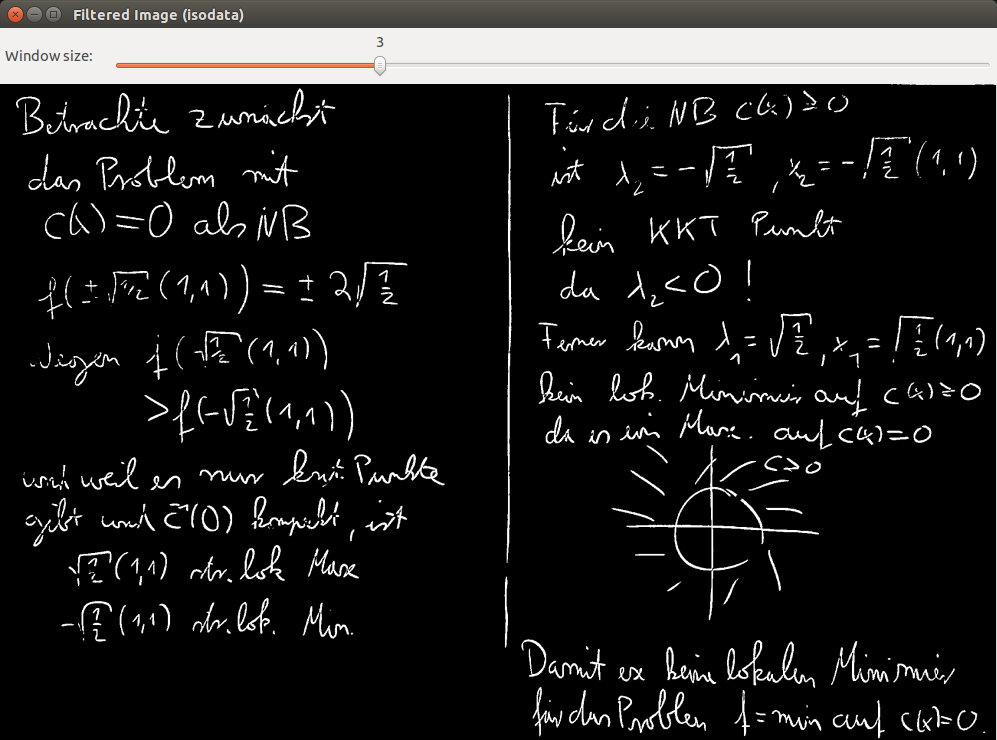 Filtered Image (isodata)
Window size:
3
Betrachte zunächst
das Problem mit
c(x)=0 als NB
f(±√1/2 (1,1)) = ± 2√1/2
wegen f(√1/2 (1,1))
>f(-√1/2 (1,1))
und weil es nur krit. Punkte
gibt und c⁻¹(0) kompakt, ist
√1/2 (1,1) str. lok Max
-√1/2 (1,1) str. lok. Min.
Für die NB c(x)≥0
ist λ₂ = -√1/2 , x₂ = -√1/2 (1,1)
kein KKT Punkt
da λ₂<0 !
Ferner kann λ₁ = √1/2 , x₁ = √1/2 (1,1)
kein lok. Minimier auf c(x)≥0
da es ein Max. auf c(x)=0
c>0
Damit ex keine lokalen Minimier
für das Problem f=min auf c(x)=0.